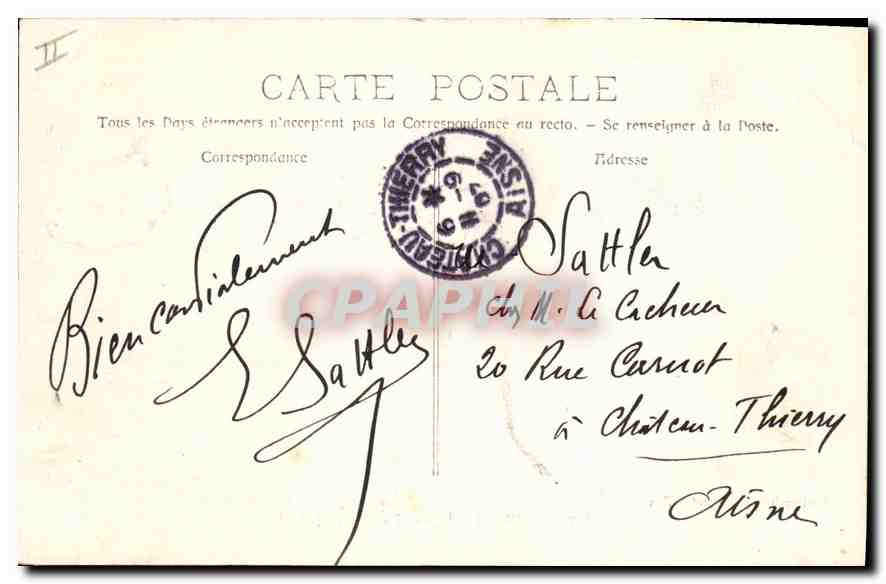 II
CARTE POSTALE
Tous les Pays étrangers n'acceptent pas la Correspondance au recto. – Se renseigner à la Poste.
Correspondance
Adresse
CHATEAU-THIERRY AISNE
Bien cordialement
E Sattler
Sattler
chez M. Le Cacheux
20 Rue Carnot
à Château-Thierry
Aisne
CPAPHIL